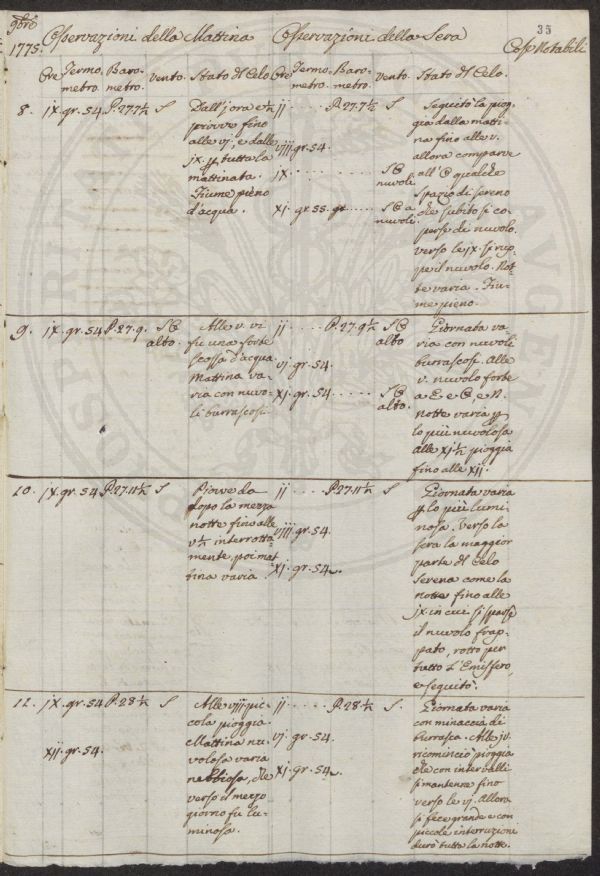 9bre
1775. Osservazioni della Mattina Osservazioni della Sera
35
Cose Notabili
Ore Termo- Baro- vento. Stato del Celo. Ore Termo- Baro- vento. Stato del Celo.
metro. metro. metro. metro.
8. ix. gr. 54. P. 27.7½ S
Dall' j ora e ½
piovve fino
alle vj, e dalle
jx. tutta la
mattinata.
Fiume pieno
d'acqua.
ij ..... P. 27.7½ S
viij gr. 54.
ix ..... nuvoli
xj. gr. 55. gr ..... nuvoli.
Seguitò la piog-
gia dalla matti-
na fino alle v.
allora comparve
all' qualche
spazio di sereno
che subito si co-
perse di nuvolo.
verso le jx. si rup-
pe il nuvolo. Not-
te varia. Fiu-
me pieno.
9. ix. gr. 54. P. 27.9. alto.
Alle v. vi
fu una forte
scossa d'acqua
Mattina va-
ria con nuvo-
li burrascosi
ij ..... P. 27.9½ alto
vj gr. 54.
xj. gr. 54. ..... alto.
Giornata va-
ria con nuvoli
burrascosi. Alle
v. nuvolo forte
notte varia
lo più nuvolosa
alle xj.½ pioggia
fino alle xij.
10. jx. gr. 54. P. 27.11½ S
Piovve da
dopo la mezza
notte fino alle
v½ interrotta-
mente, poi mat-
tina varia.
ij .... P. 27.11½ S
viij gr. 54.
xj. gr. 54.
Giornata varia
lo più lumi-
nosa. verso la
sera la maggior
parte del Celo
serena come la
notte fino alle
jx in cui si sparse
il nuvolo frap-
pato, rotto per
tutto l'Emisfero,
e seguitò.
jx. gr. 54. P. 28½ S
xij. gr. 54.
Alle viij pic-
cola pioggia.
Mattina nu-
volosa varia
nebbiosa, che
verso il mezzo
giorno fu lu-
minosa.
ij .... P. 28½ S.
vj gr. 54.
xj. gr. 54.
Giornata varia
con minaccia di
burrasca. Alle jv.
ricominciò pioggia
che con intervalli
si mantenne fino
verso le vj. Allora
si fece grande e con
piccole interruzioni
durò tutta la notte.